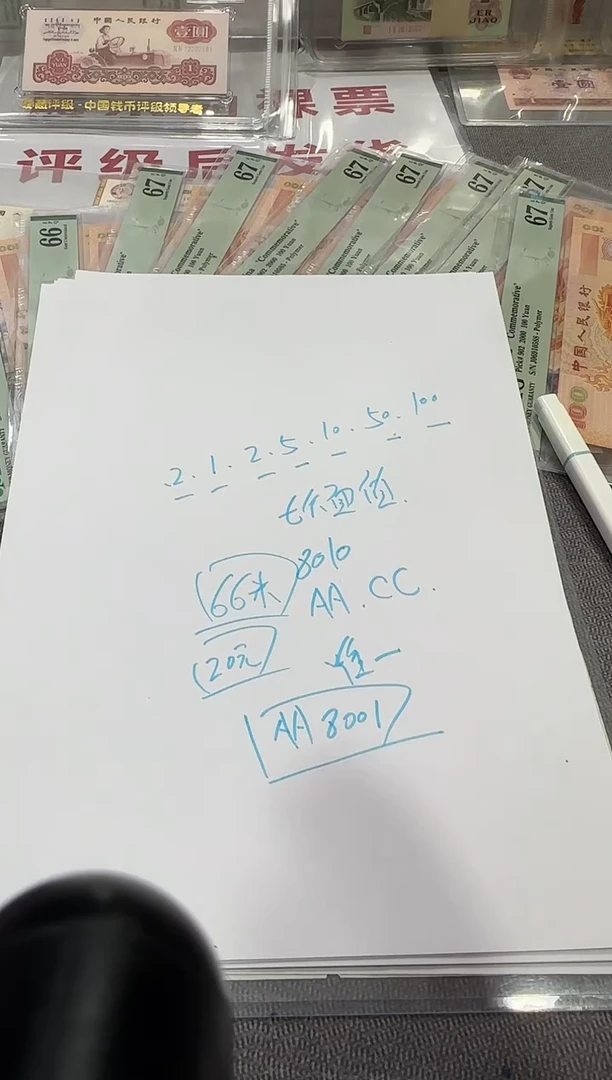 中国人民银行
壹圆
ER
JIAO
爱藏评级·中国钱币评级领导者
裸票
壹圆
评级后发货
66
67
67
67
67
67
67
67
Commemorative"
Pick# 902 2000 100 Yuan
S/N J06810588 - Polymer
中国人民银行
100
.2.1.2.5.10.50.100
七个面值.
8010
66米
AA.CC.
20元
唯一
AA 8001